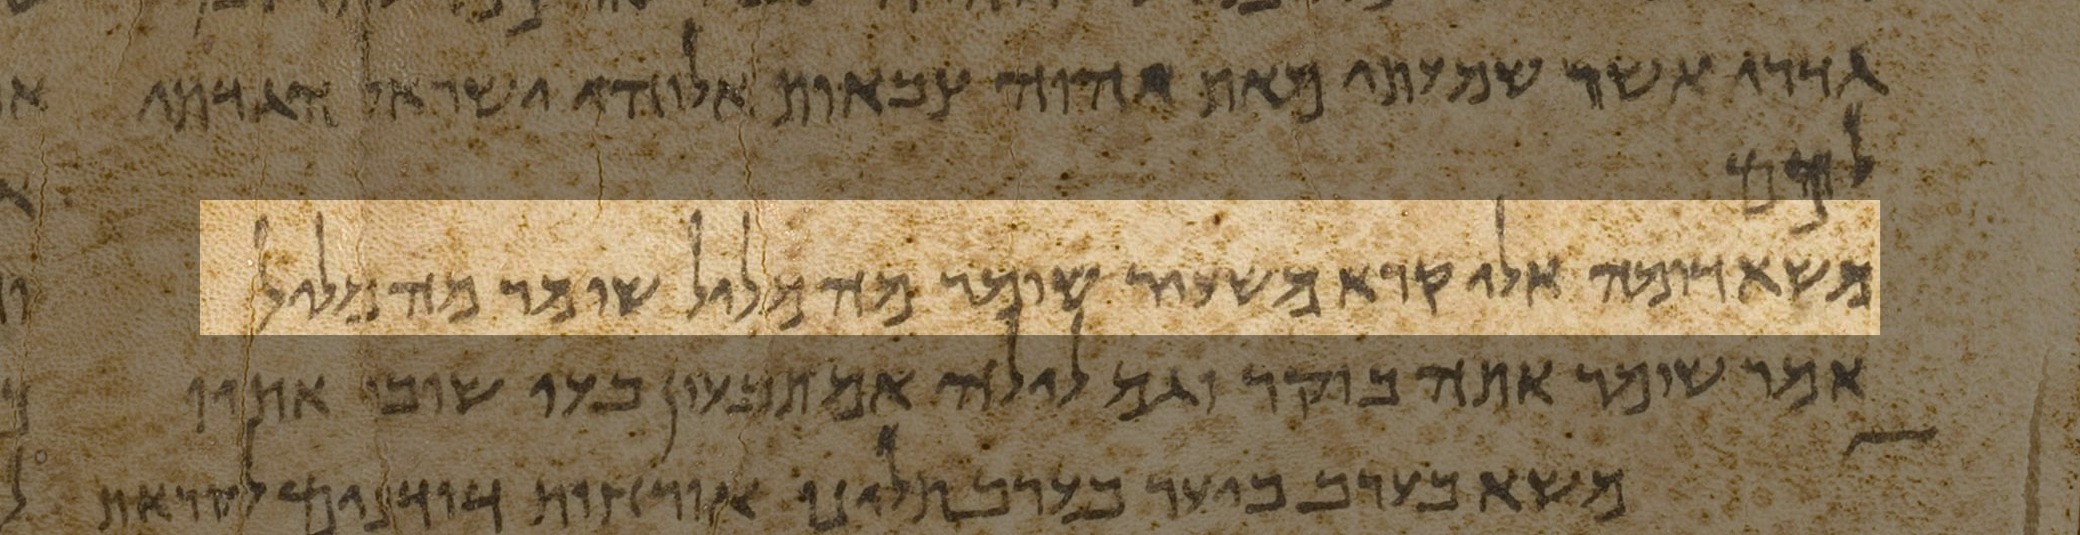 גדרי אשר שמעתי מאת יהוה צבאות אלוהי ישראל הגדתי
לכם
משא דומה אלי קרא משעיר שומר מה מליל שומר מה מליל
אמר שומר אתה בוקר וגם לילה אם תבעון בעו שובו אתיו
משא בערב ביער בערב תלינו אורחות דודנים לקראת